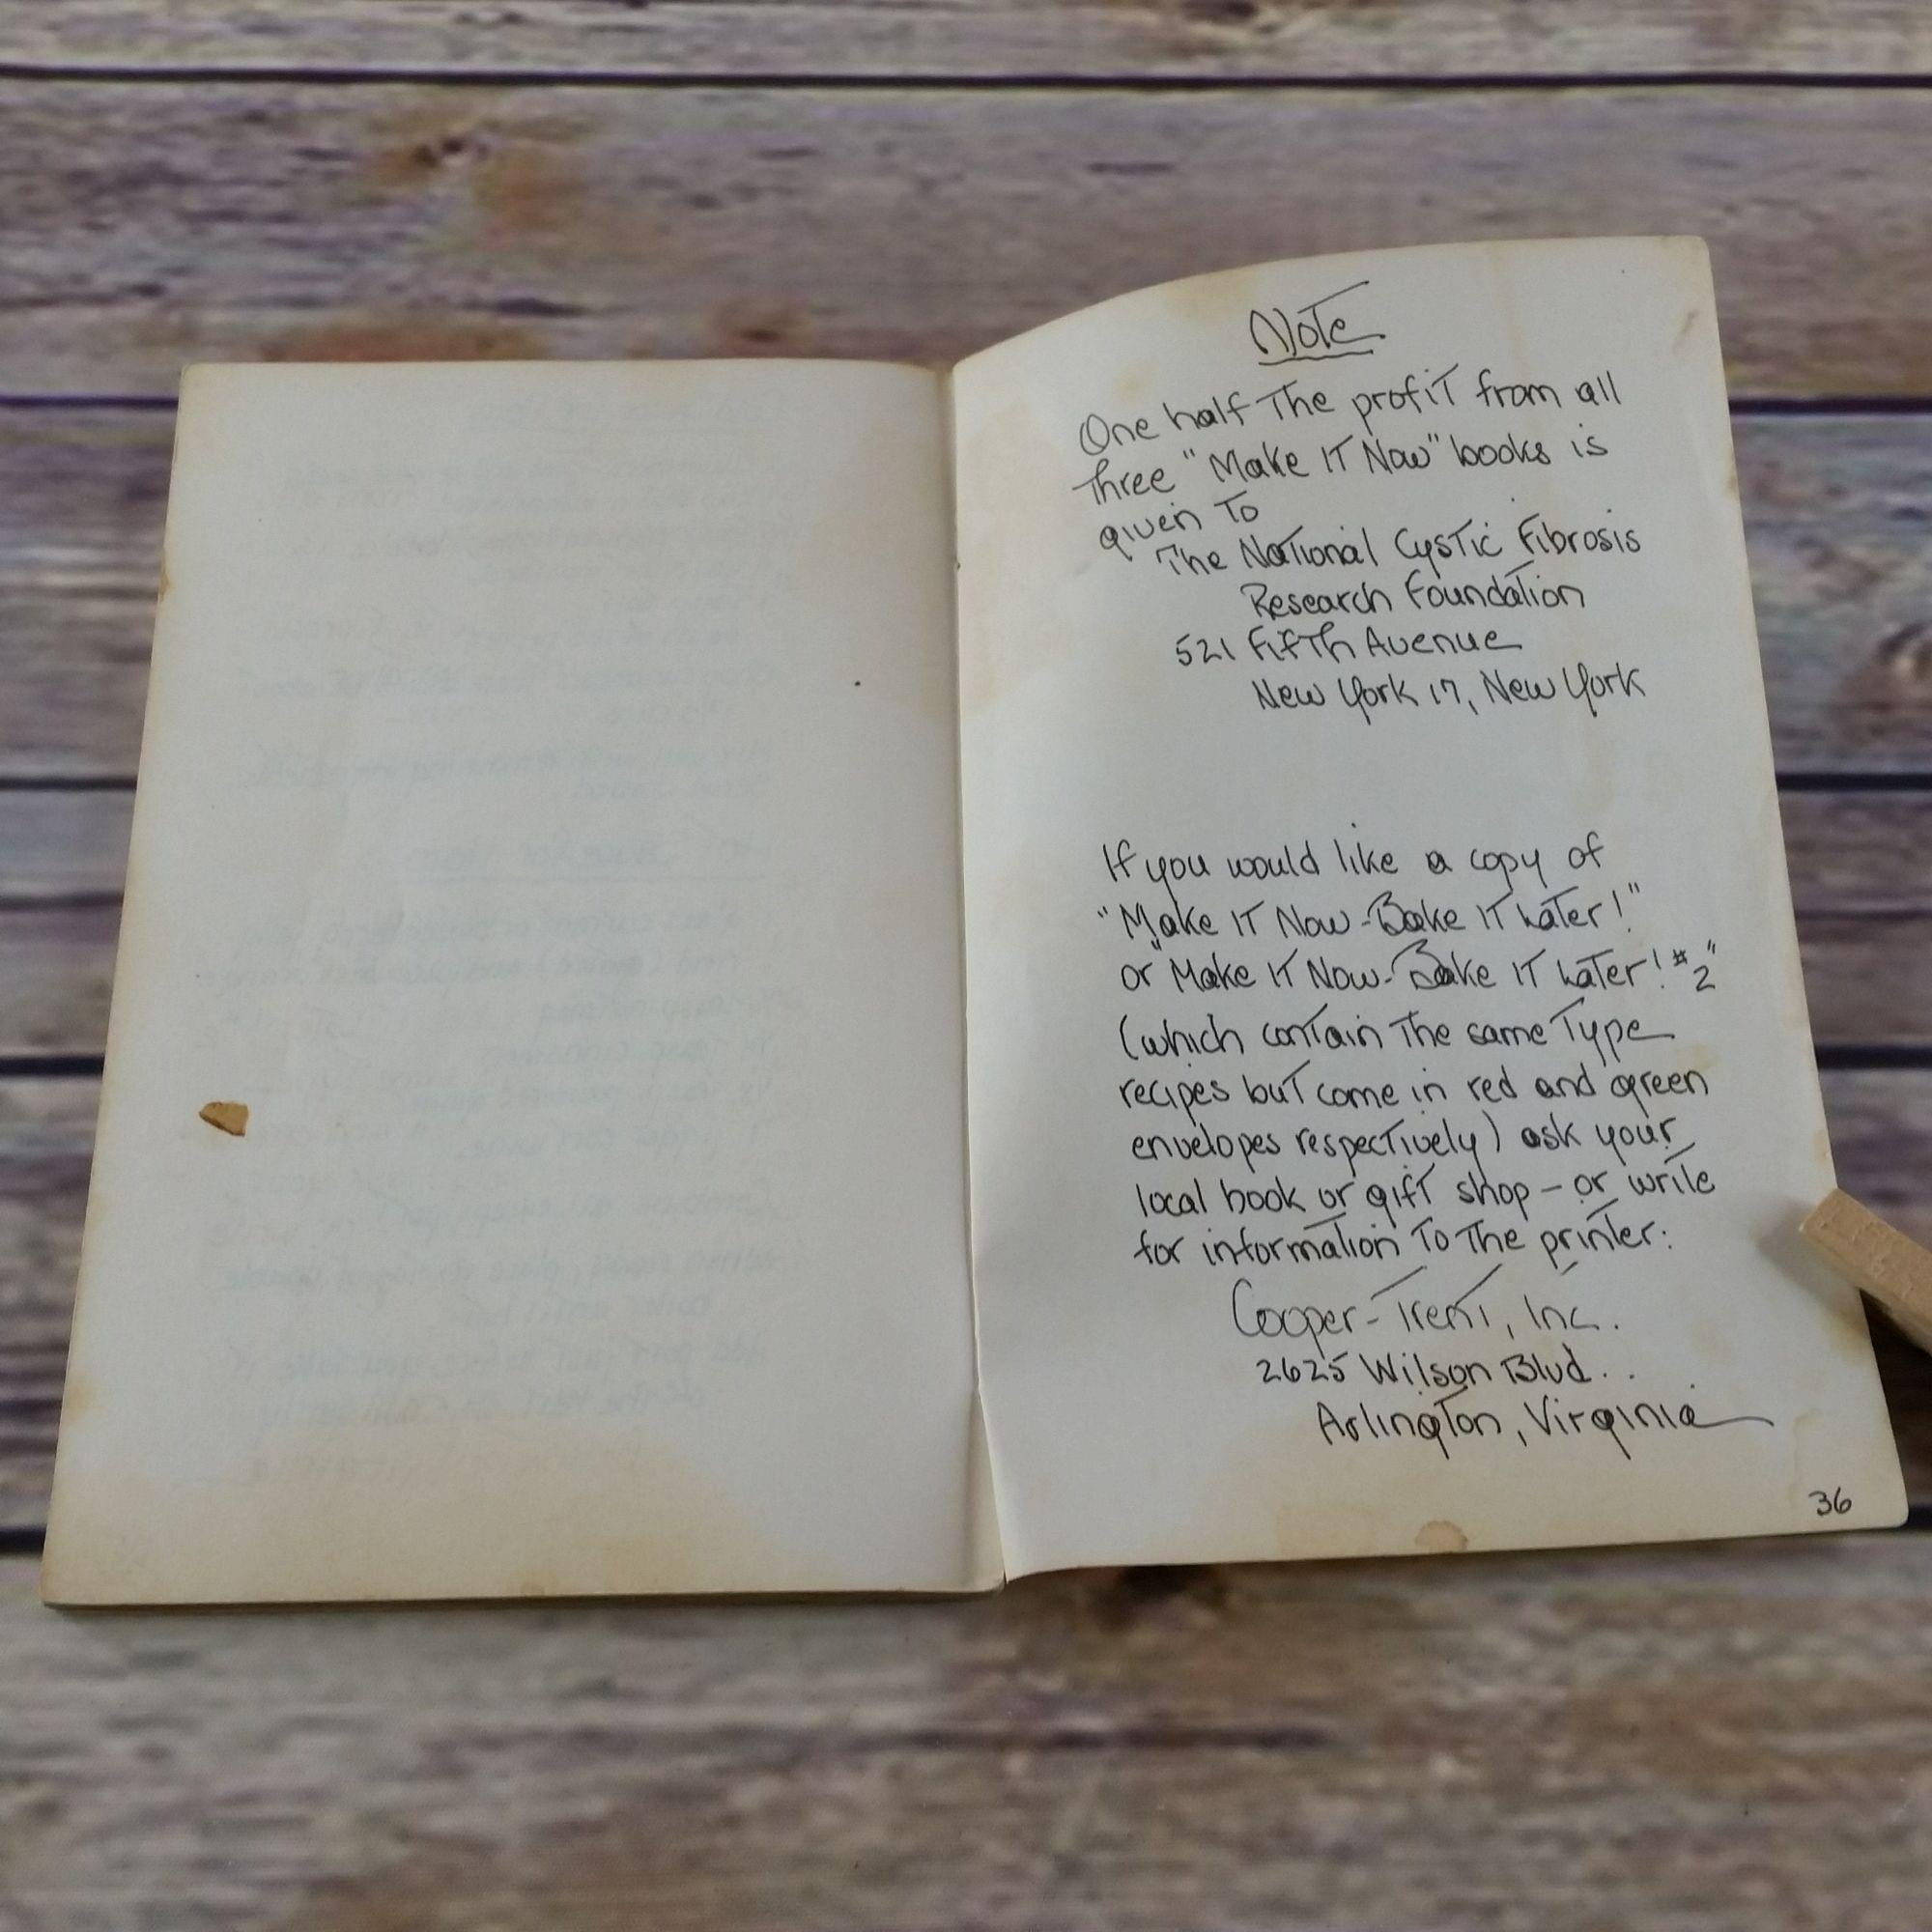 Note
One half The profit from all
Three "Make IT Now" books is
given To
The National Cystic Fibrosis
Research Foundation
521 Fifth Avenue
New York 17, New York
If you would like a copy of
"Make IT Now-Bake IT Later!"
or "Make IT Now-Bake IT Later! #2"
(which contain The same Type
recipes but come in red and green
envelopes respectively) ask your
local book or gift shop - or write
for information To The printer:
Cooper-Trent, Inc.
2625 Wilson Blvd.
Arlington, Virginia
36